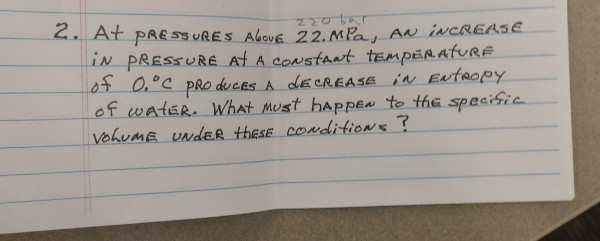 220 bar
2. At pRESSURES Above 22.MPa, AN iNCREASE
iN pRESSURE At A CONStANt tEMPERAtURE
of 0.°C pROduces A dECREASE iN ENtROpy
of wAtER. What Must happen to the specific
VOLUME UNdER thESE conditions?